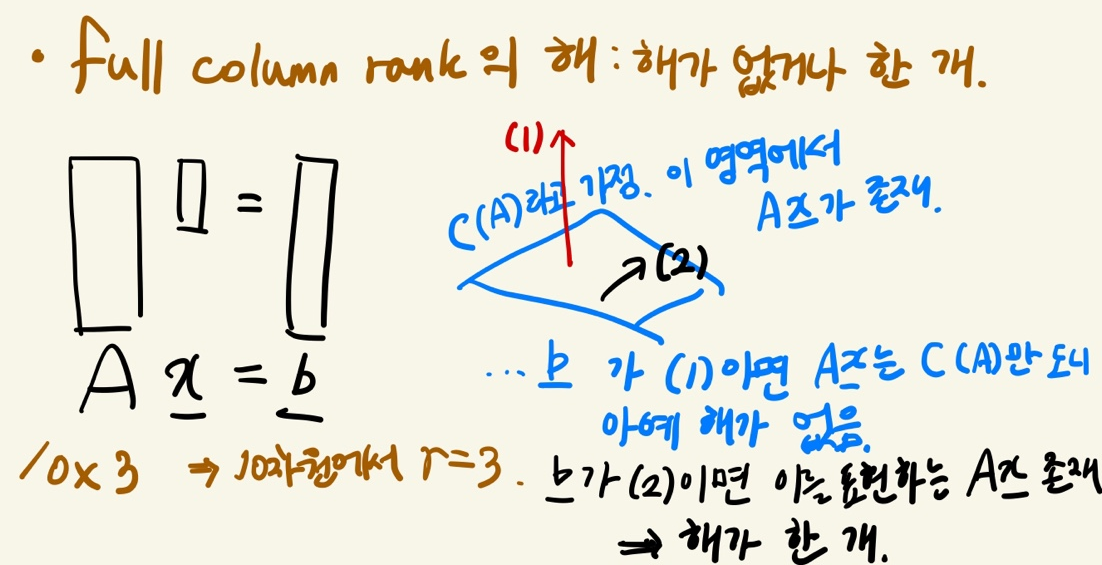 • full column rank의 해 : 해가 없거나 한 개.
(1)
C(A)라고 가정. 이 영역에서
Ax가 존재.
=
(2)
A x = b
... b 가 (1)이면 Ax는 C(A)만 도니
아예 해가 없음.
10x3 ⇒ 10차원에서 r=3.
b가 (2)이면 이를 표현하는 Ax 존재
⇒ 해가 한 개.